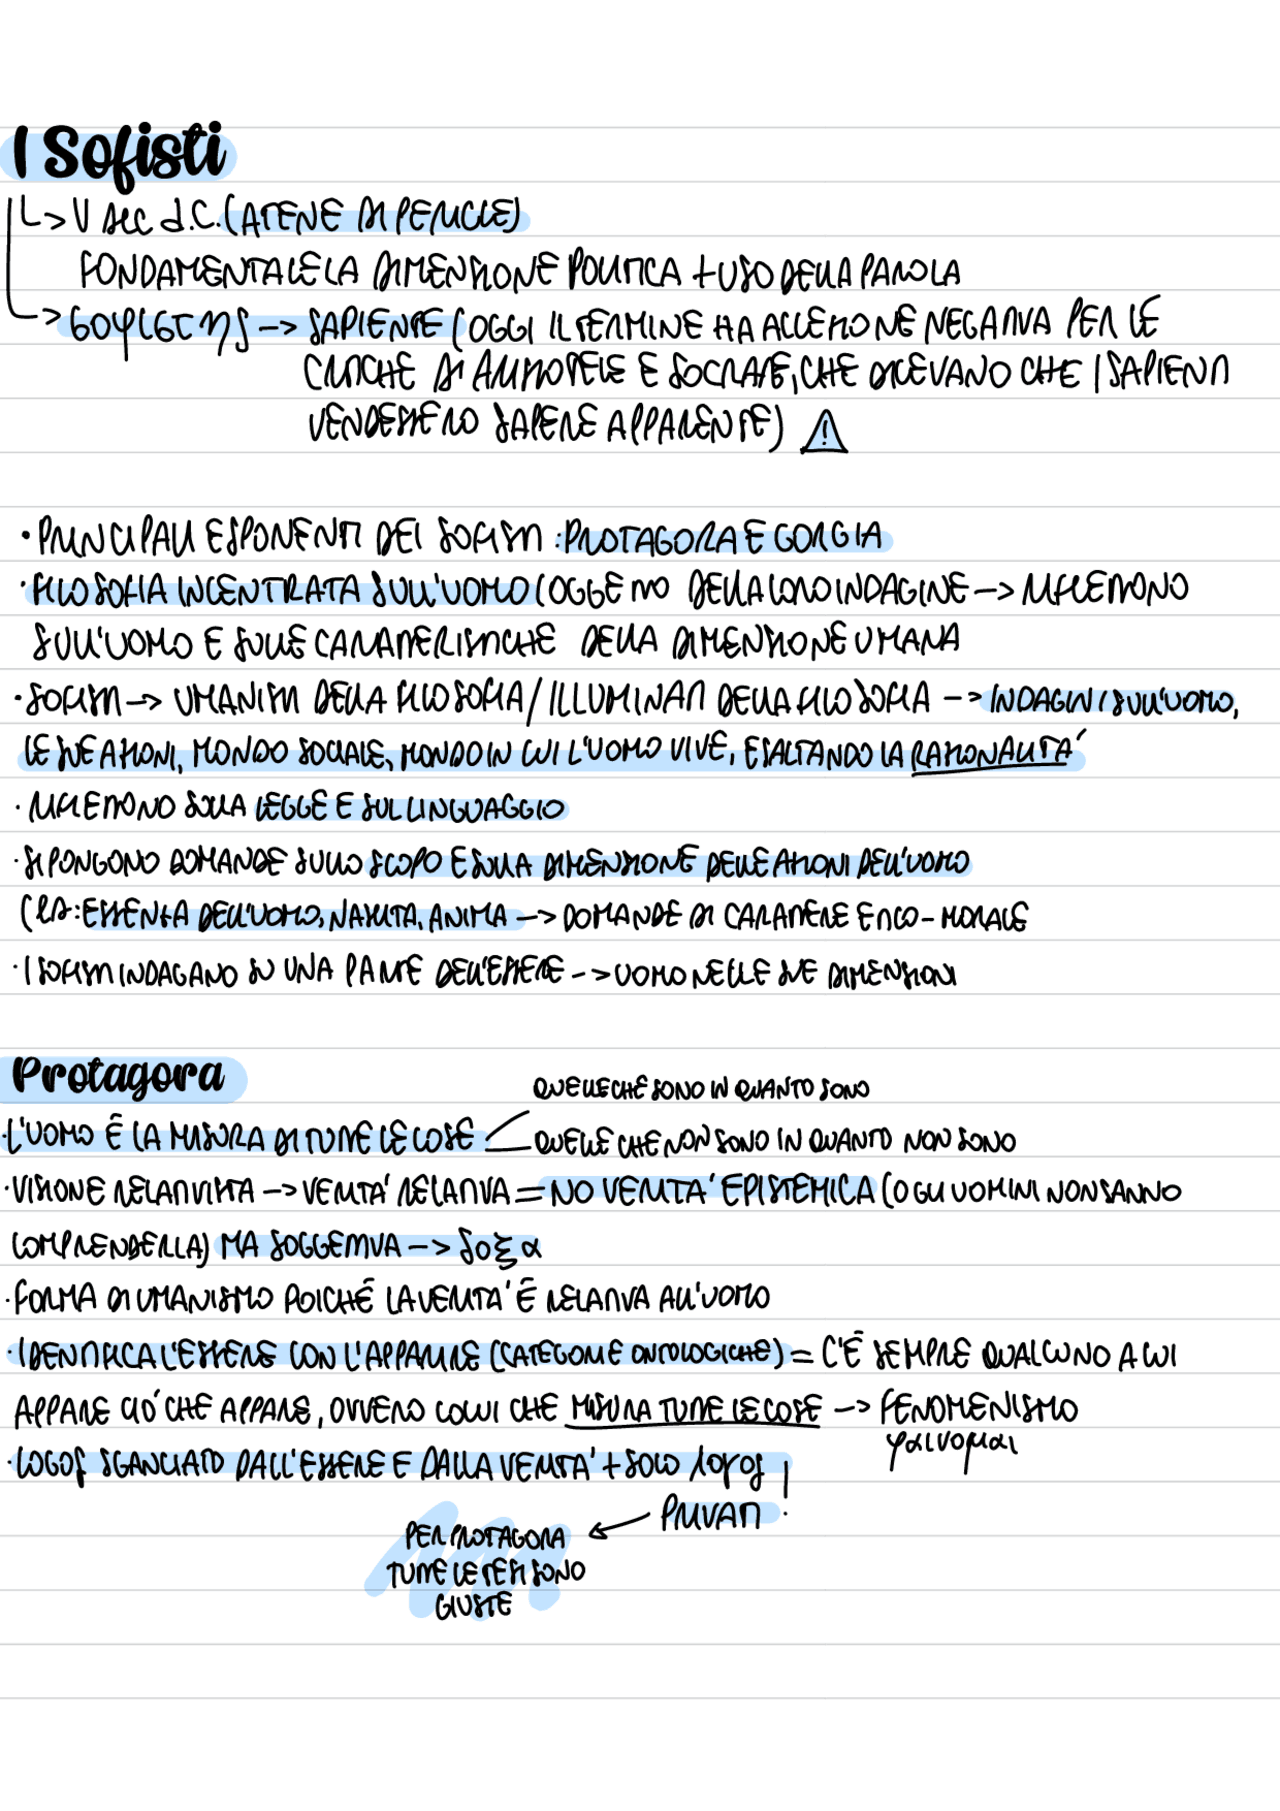 I Sofisti
↳ V sec d.C. (ATENE DI PERICLE)
FONDAMENTALE LA DIMENSIONE POLITICA + USO DELLA PAROLA
→ σοφιστης → SAPIENTE (OGGI IL TERMINE HA ACCEZIONE NEGATIVA PER LE
CRITICHE DI ARISTOTELE E SOCRATE, CHE DICEVANO CHE I SAPIENTI
VENDESSERO SAPERE APPARENTE) ⚠
• PRINCIPALI ESPONENTI DEI SOFISTI: PROTAGORA E GORGIA
• FILOSOFIA INCENTRATA SULL'UOMO (OGGETTO DELLA LORO INDAGINE → RIFLETTONO
SULL'UOMO E SULLE CARATTERISTICHE DELLA DIMENSIONE UMANA
• SOFISTI → UMANISTI DELLA FILOSOFIA / ILLUMINATI DELLA FILOSOFIA → INDAGINI SULL'UOMO,
LE SUE AZIONI, MONDO SOCIALE, MONDO IN CUI L'UOMO VIVE, ESALTANDO LA RAZIONALITA'
• RIFLETTONO SULLA LEGGE E SUL LINGUAGGIO
• SI PONGONO DOMANDE SULLO SCOPO E SULLA DIMENSIONE DELLE AZIONI DELL'UOMO
(ES: ESSENZA DELL'UOMO, NASCITA, ANIMA → DOMANDE DI CARATTERE ETICO-MORALE
• I SOFISTI INDAGANO SU UNA PARTE DELL'ESSERE → UOMO NELLE SUE DIMENSIONI
Protagora
QUELLE CHE SONO IN QUANTO SONO
• L'UOMO È LA MISURA DI TUTTE LE COSE
QUELLE CHE NON SONO IN QUANTO NON SONO
• VISIONE RELATIVISTA → VERITA' RELATIVA = NO VERITA' EPISTEMICA (O GLI UOMINI NON SANNO
COMPRENDERLA) MA SOGGETTIVA → δοξα
• FORMA DI UMANISMO POICHÉ LA VERITA' È RELATIVA ALL'UOMO
• IDENTIFICA L'ESSERE CON L'APPARIRE (CATEGORIE ONTOLOGICHE) = C'È SEMPRE QUALCUNO A CUI
APPARE CIÒ CHE APPARE, OVVERO COLUI CHE MISURA TUTTE LE COSE → FENOMENISMO
φαινομαι
• LOGOS SGANCIATO DALL'ESSERE E DALLA VERITA' + SOLO λογος
PRIVATI !
PER PROTAGORA
TUTTE LE TESI SONO
GIUSTE